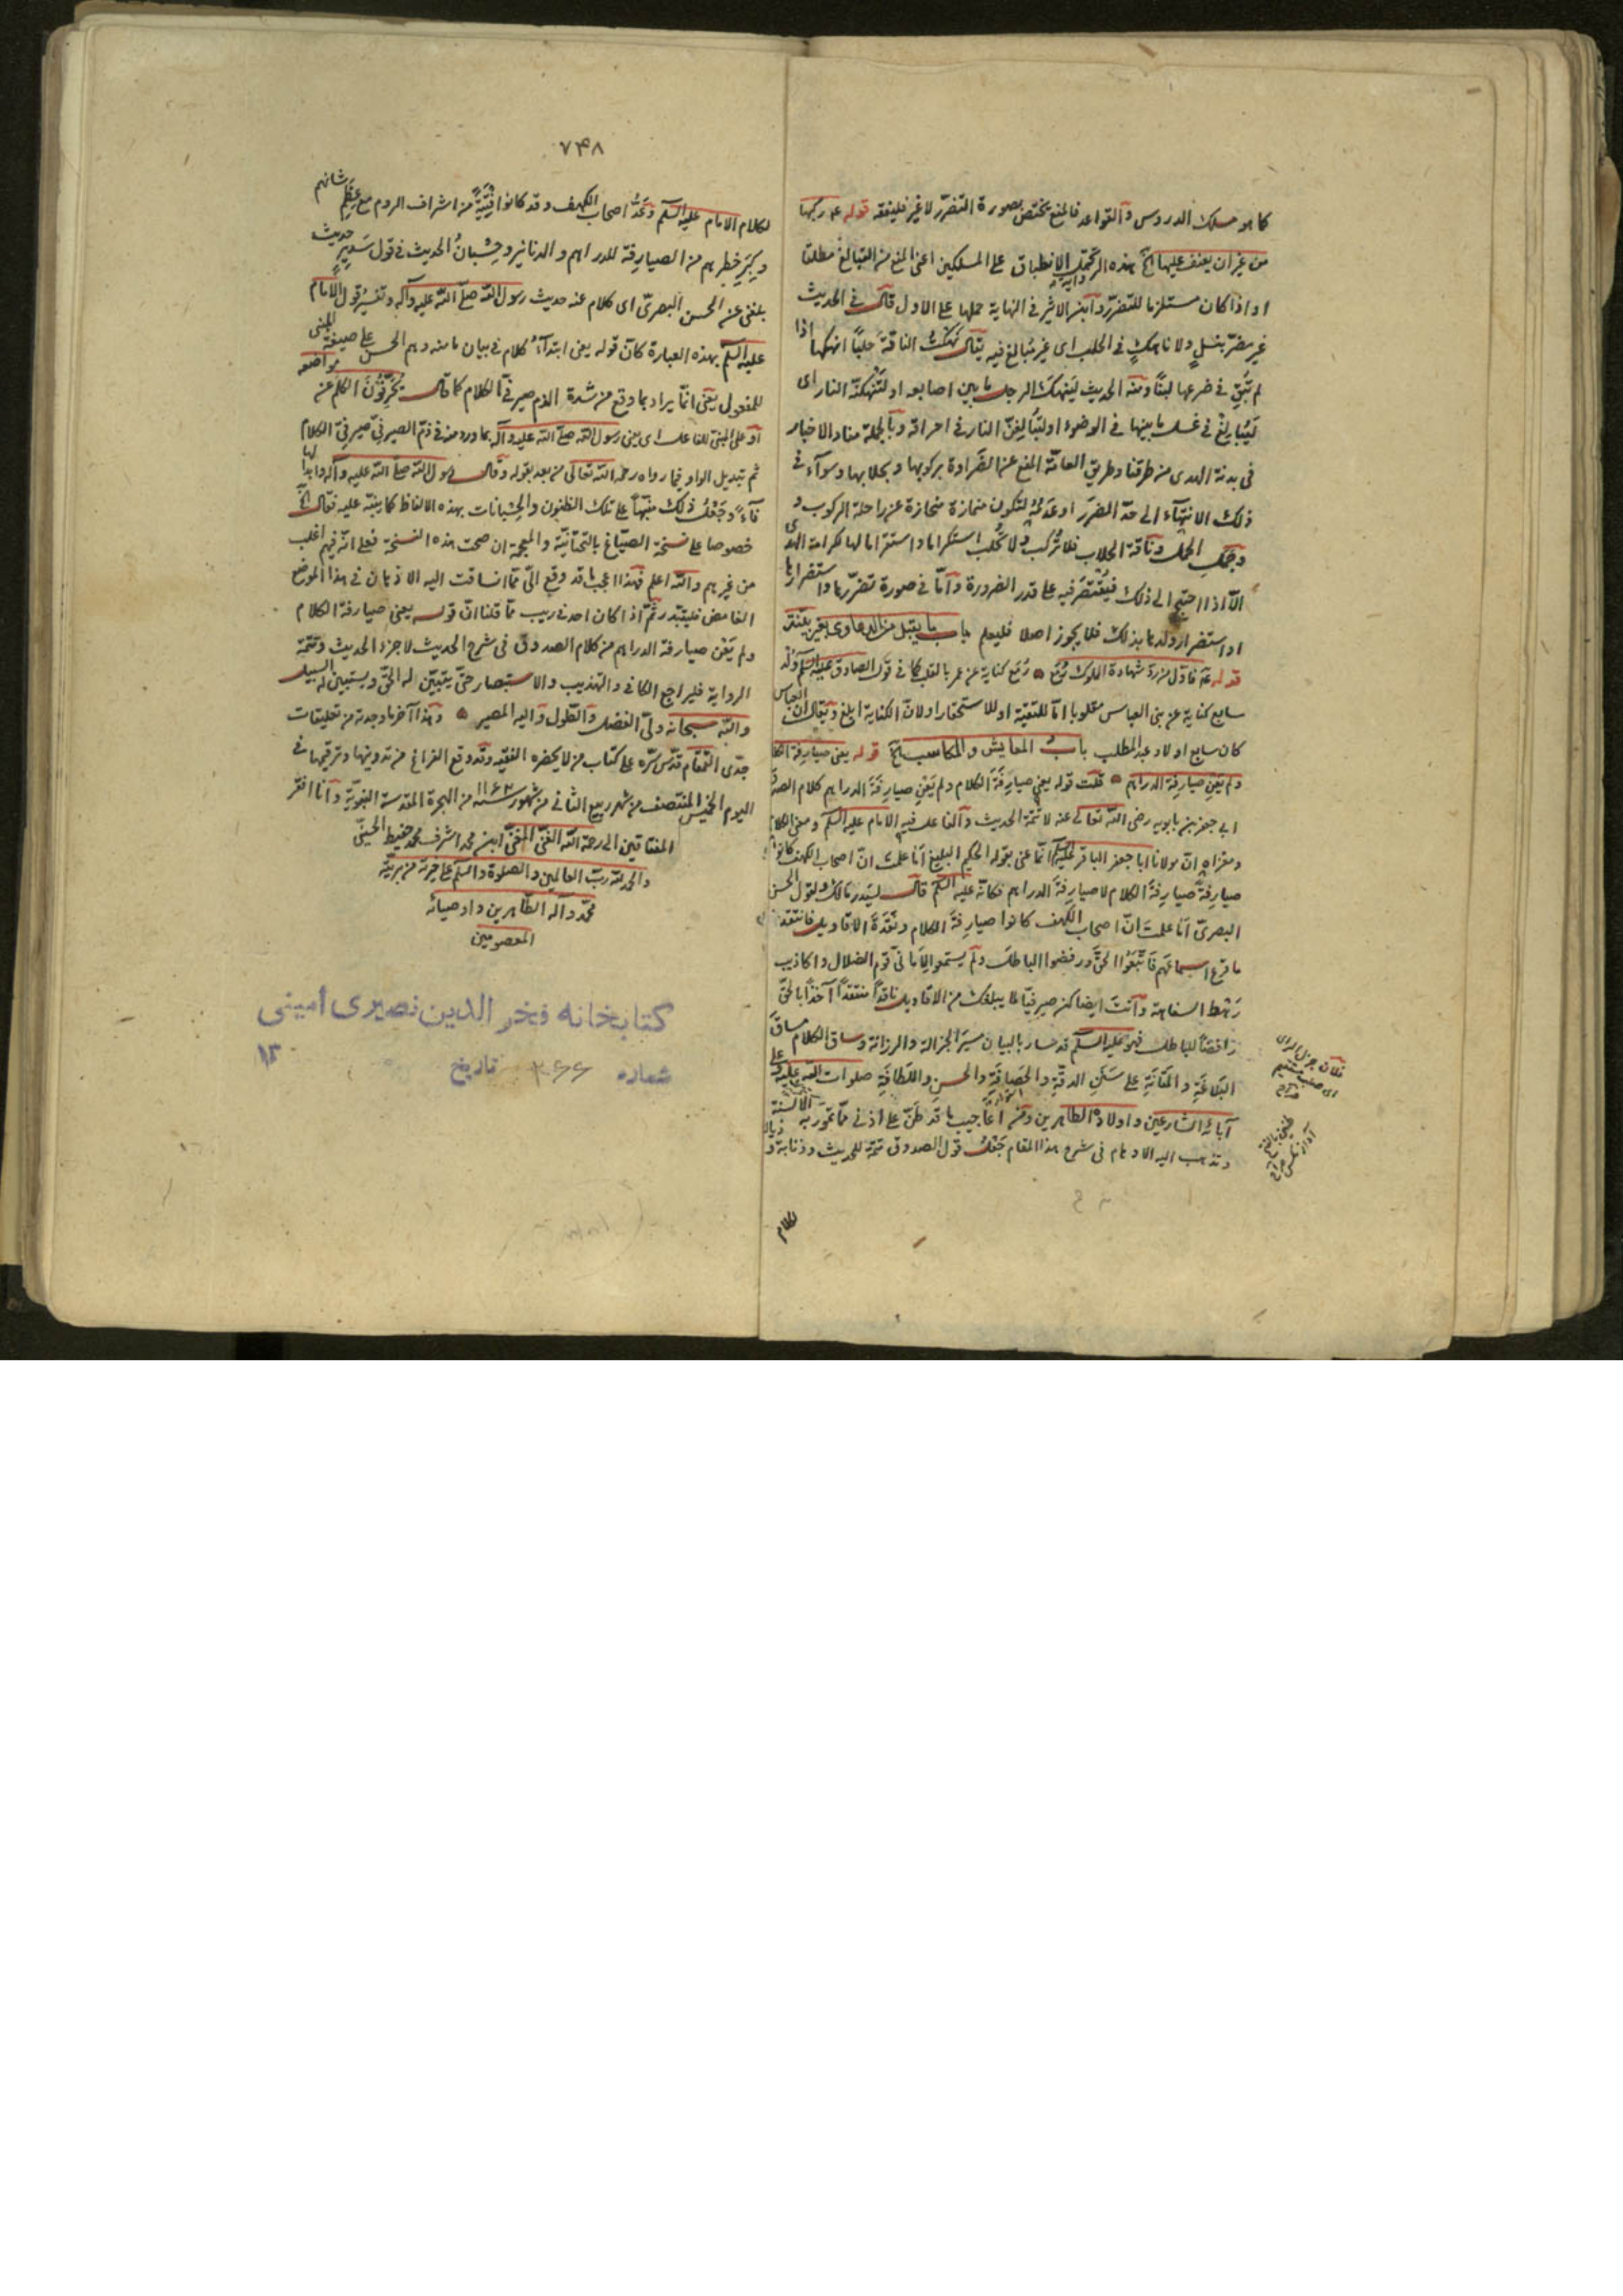 كما هو مسلك الدروس والقواعد فالمنع يختص بصورة التضرر لا غير فليفقه قوله ع ركبها
من غير ان يعنف عليها الخ هذه الرواية تحتمل الانطباق على المسلكين اعنى المنع من التبالغ مطلقا
او اذا كان مستلزما للتضرر وابن الاثير فى النهاية حملها على الاول قال فى الحديث
غير مضر بنسل ولا ناهك فى الحلب اى غير مبالغ فيه يقال نهكت الناقة حلبا انهكها اذا
لم تبق فى ضرعها لبنا ومنه الحديث لينهك الرجل ما بين اصابعه او لتنهكنه النار اى
ليبالغ فى غسل ما بينها فى الوضوء او لتبالغن النار فى احراقه وبالجملة مفاد الاخبار
فى بدنة الهدى من طرقنا وطريق العامة المنع عن الضرارة بركوبها وبحلابها وسواء فى
ذلك الانتهاء الى حد الضرر او عدمه لتكون منمازة منحازة عن راحلة الركوب و
وجمل الحمل وناقة الحلاب فلا تركب ولا تحلب استكراما واستقراما لها لكرامة الهدى
الا اذا احتيج الى ذلك فيقتصر فيه على قدر الضرورة واما فى صورة تضررها واستضرارها
او استضرار ولدها بذلك فلا يجوز اصلا فليعلم باب ما يقبل من الدعاوى بغير بينة
قوله ع فاول من رد شهادة المملوك رمع ۞ رمع كناية عن عمر بالقلب كما فى قول الصادق عليه السلم ولد
سابع كناية عن بنى العباس مقلوبا اما للتقية او للاستحقار او لان الكناية ابلغ ويقال ان العباس
كان سابع اولاد عبد المطلب باب المعايش والمكاسب الخ قوله يعنى صيارفة الكلام
ولم يعن صيارفة الدراهم ۞ قلت قوله يعنى صيارفة الكلام ولم يعن صيارفة الدراهم كلام الصدوق
ابى جعفر بن بابويه رضى الله تعالى عنه لا تتمة الحديث والفاعل فيه الامام عليه السلم ومعنى الكلام
ومغزاه ان مولانا ابا جعفر الباقر عليه السلم انما عنى بقوله الحكيم البليغ اما علمت ان اصحاب الكهف كانوا
صيارفة صيارفة الكلام لا صيارفة الدراهم فكانه عليه السلم قال لسدير مالك ولقول الحسن
البصرى اما علمت ان اصحاب الكهف كانوا صيارفة الكلام ونقدة الاقاويل فانتقدوا
ما قرع اسماعهم فاتبعوا الحق ورفضوا الباطل ولم يستمعوا لامانى قوم الضلال واكاذيب
رهط السفاهة وانت ايضا كن صيرفيا لما يبلغك من الاقاويل ناقدا منتقدا آخذا بالحق
رافضا للباطل فهو عليه السلم قد سار بالبيان مسير الجزالة والرزانة وساق الكلام مساق
البلاغة والمتانة على سنن الدقة والحصافة والحسن واللطافة صلوات الله عليه وعلى
آبائه الشارعين واولاده الطاهرين ومن اعاجيب ما قد طن على اذنى مما تمور به الالسنة
وتذهب اليه الاوهام فى شرح هذا المقام جعل قول الصدوق تتمة للحديث وذنابة و
لكلام
٧٤٨
لكلام الامام عليه السلم وعد اصحاب الكهف وقد كانوا فتية من اشراف الروم مع عظم شانهم
وكبر خطرهم من الصيارفة للدراهم والدنانير وحسبان الحديث فى قول سدير حديث
بلغنى عن الحسن البصرى اى كلام عنه حديث رسول الله صلى الله عليه وآله وتفسير قول الامام
عليه السلم بهذه العبارة كان قوله يعنى ابتداء كلام فى بيان ما منه وهم الحسن على صيغة المبنى
للمفعول يعنى انما يراد بما وقع من شدة الذم صيرفى الكلام كما قال يحرفون الكلم عن مواضعه
او على المبنى للفاعل اى يعنى رسول الله صلى الله عليه وآله بما ورد منه فى ذم الصيرفى صيرفى الكلام
ثم تبديل الواو فيما رواه رحمه الله تعالى من بعد بقوله وقال رسول الله صلى الله عليه وآله وابدالها
فاء وجعل ذلك منبها على تلك الظنون والحسبانات بهذه الالفاظ كما ينبه عليه فقال الخ
خصوصا على نسخة الصياغ بالتحتانية والمعجمة ان صحت هذه النسخة فعلى انه فيهم اغلب
من غيرهم والله اعلم فهذا اعجب ما قد وقع الى مما انساقت اليه الاذهان فى هذا الموضع
الغامض فليتبدر ثم اذا كان احد فى ريب مما قلنا ان قوله يعنى صيارفة الكلام
ولم يعن صيارفة الدراهم من كلام الصدوق فى شرح الحديث لا جزء الحديث وتتمة
الرواية فليراجع الكافى والتهذيب والاستبصار حتى يتبين له الحق ويستبين له السبيل
والله سبحانه ولى الفضل والطول واليه المصير ۞ وهذا آخر ما وجدته من تعليقات
جدى القمقام قدس سره على كتاب من لا يحضره الفقيه وقد وقع الفراغ من تدوينها وترقيمها فى
اليوم الخميس المنتصف من شهر ربيع الثانى من شهور سنه ١١٦٣ من الهجرة المقدسة النبوية وانا افقر
المفتاقين الى رحمة الله الغنى المغنى ابن محمد اشرف محمد حفيظ الحسينى
والحمد لله رب العالمين والصلوة والسلم على خيرته من بريته
محمد وآله الطاهرين واوصيائه
المعصومين
كتابخانه فخر الدين نصيرى أمينى
شماره ٣٦٦ تاريخ ١٣